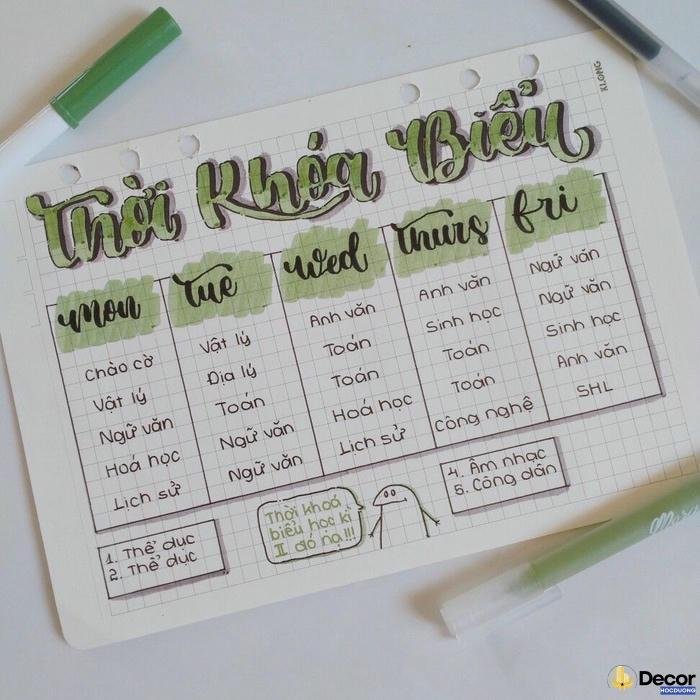 KLONG
Thời Khóa Biểu
Mon
Chào cờ
Vật lý
Ngữ văn
Hoá học
Lịch sử
Tue
Vật lý
Địa lý
Toán
Ngữ văn
Ngữ văn
Wed
Anh văn
Toán
Toán
Hoá học
Lịch sử
Thurs
Anh văn
Sinh học
Toán
Toán
Công nghệ
fri
Ngữ văn
Ngữ văn
Sinh học
Anh văn
SHL
1. Thể dục
2. Thể dục
Thời khoá
biểu học kì
II đó nạ!!!
4. Âm nhạc
5. Công dân
Decor
HOCDUONG